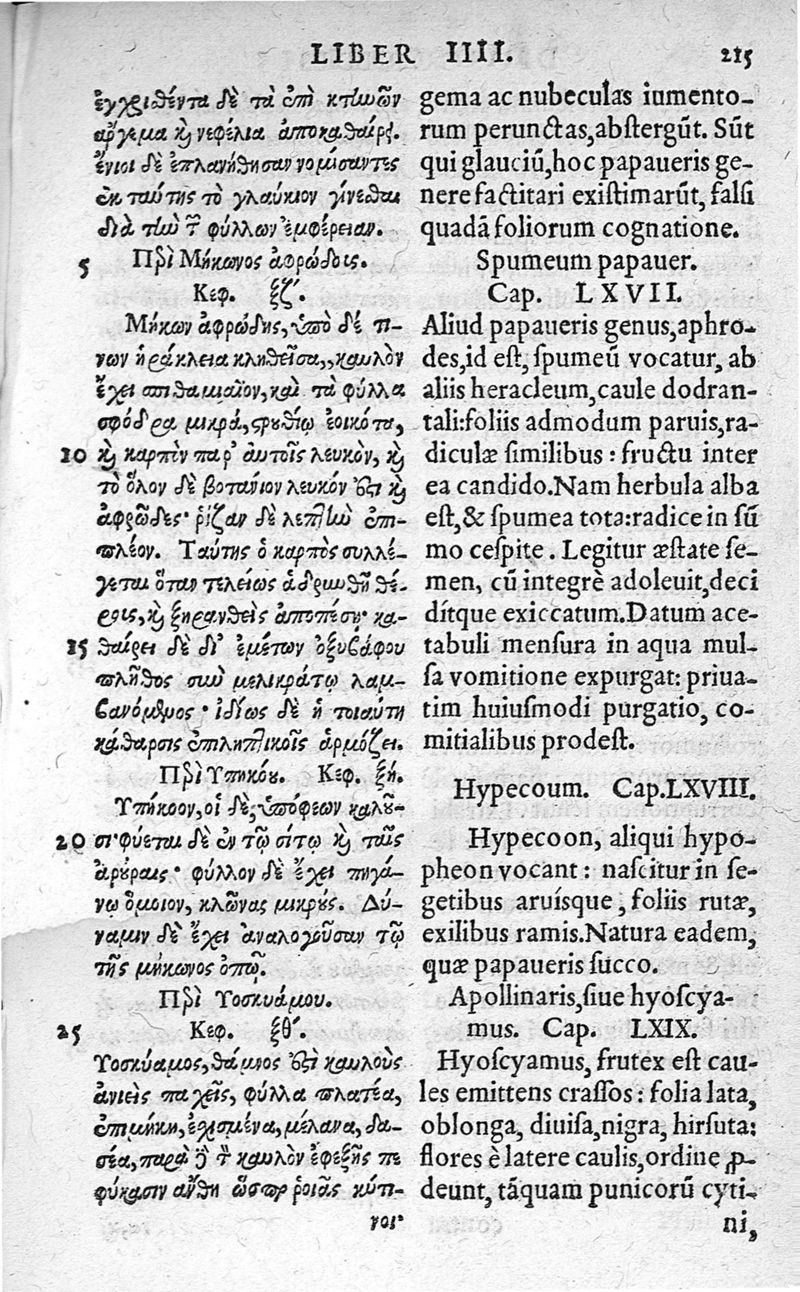 LIBER IIII. 215
ἐγχριθέντα δὲ τὰ ἐπὶ κτηνῶν
ἄργεμα κ̀ νεφέλια ἀποκαθαίρει.
ἔνιοι δὲ ἐπλανήθησαν νομίσαντες
ἐκ ταύτης τὸ γλαύκιον γίνεσθαι
διὰ τὴν τ̃ φύλλων ἐμφέρειαν.
5 Περὶ Μήκωνος ἀφρώδους.
Κεφ. ξζ΄.
Μήκων ἀφρώδης, ὑπὸ δέ τι-
νων ἡράκλεια κληθεῖσα, καυλὸν
ἔχει σπιθαμιαῖον, καὶ τὰ φύλλα
σφόδρα μικρά, στρουθίῳ ἐοικότα,
10 κ̀ καρπὸν παρ' αὐτοῖς λευκὸν, κ̀
τὸ ὅλον δὲ βοτάνιον λευκόν ἐστι κ̀
ἀφρῶδες· ῥίζαν δὲ λεπτὴν ἐπι-
πλέον. Ταύτης ὁ καρπὸς συλλέ-
γεται ὅταν τελείως ἁδρυνθῇ θέ-
ρους, κ̀ ξηρανθεὶς ἀποπέσῃ· κα-
15 θαίρει δὲ δι' ἐμέτων ὀξυβάφου
πλῆθος σὺν μελικράτῳ λαμ-
βανόμενος· ἰδίως δὲ ἡ τοιαύτη
κάθαρσις ἐπιληπτικοῖς ἁρμόζει.
Περὶ Ὑπηκόου. Κεφ. ξη.
Ὑπήκοον, οἱ δὲ, ὑπόφεων καλοῦ-
20 σι· φύεται δὲ ἐν τῷ σίτῳ κ̀ ταῖς
ἀρούραις· φύλλον δὲ ἔχει πηγά-
νῳ ὅμοιον, κλῶνας μικρούς. Δύ-
ναμιν δὲ ἔχει ἀναλογοῦσαν τῷ
τῆς μήκωνος ὀπῷ.
Περὶ Ὑοσκυάμου.
25 Κεφ. ξθ΄.
Ὑοσκύαμος, θάμνος ἐστὶ καυλοὺς
ἀνιεὶς παχεῖς, φύλλα πλατέα,
ἐπιμήκη, ἐχισμένα, μέλανα, δα-
σέα, παρὰ δὲ τ̀ καυλὸν ἐφεξῆς πε
φύκασιν ἄνθη ὥσπερ ῥοιᾶς κύτι-
νοι·
gema ac nubeculas iumento-
rum perunctas, abstergūt. Sūt
qui glauciū, hoc papaueris ge-
nere factitari existimarūt, falsi
quadā foliorum cognatione.
Spumeum papauer.
Cap. LXVII.
Aliud papaueris genus, aphro-
des, id est, spumeū vocatur, ab
aliis heracleum, caule dodran-
tali: foliis admodum paruis, ra-
diculæ similibus: fructu inter
ea candido. Nam herbula alba
est, & spumea tota: radice in sū
mo cespite. Legitur æstate se-
men, cū integrè adoleuit, deci
dítque exiccatum. Datum ace-
tabuli mensura in aqua mul-
sa vomitione expurgat: priua-
tim huiusmodi purgatio, co-
mitialibus prodest.
Hypecoum. Cap. LXVIII.
Hypecoon, aliqui hypo-
pheon vocant: nascitur in se-
getibus aruísque, foliis rutæ,
exilibus ramis. Natura eadem,
quæ papaueris succo.
Apollinaris, siue hyoscya-
mus. Cap. LXIX.
Hyoscyamus, frutex est cau-
les emittens crassos: folia lata,
oblonga, diuisa, nigra, hirsuta:
flores è latere caulis, ordine ꝓ-
deunt, tāquam punicorū cyti-
ni,